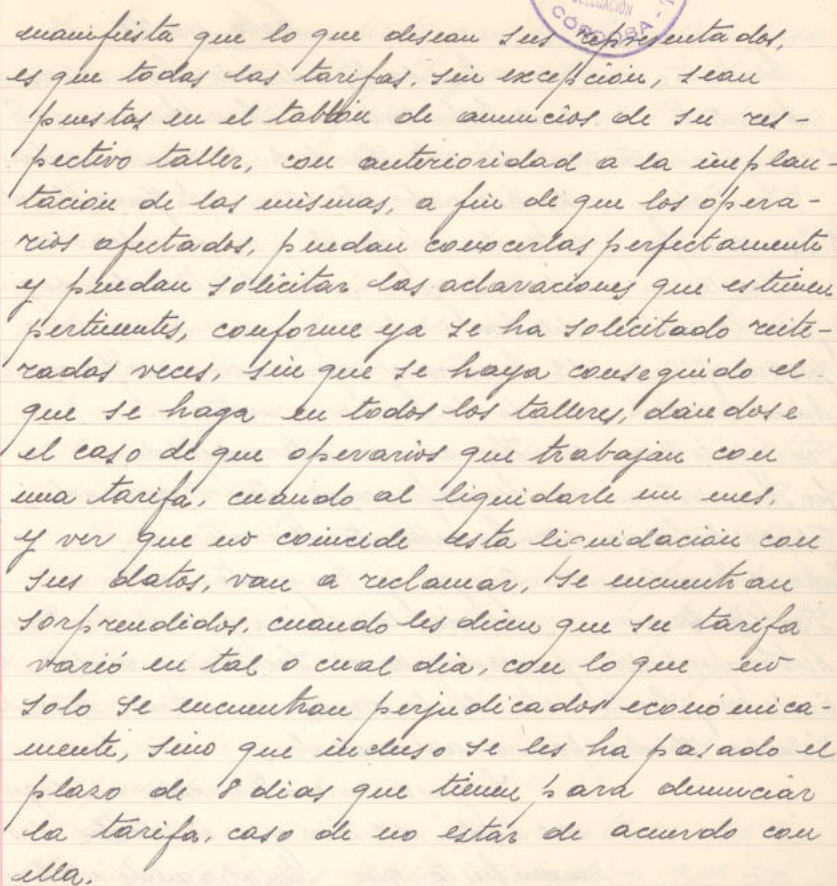 DELEGACIÓN
CÓRDOBA
manifiesta que lo que desean sus representados,
es que todas las tarifas, sin excepción, sean
puestas en el tablón de anuncios de su res-
pectivo taller, con anterioridad a la implan-
tación de las mismas, a fin de que los opera-
rios afectados, puedan conocerlas perfectamente
y puedan solicitar las aclaraciones que estimen
pertinentes, conforme ya se ha solicitado reite-
radas veces, sin que se haya conseguido el
que se haga en todos los talleres, dándose
el caso de que operarios que trabajan con
una tarifa, cuando al liquidarle un mes,
y ver que no coincide esta liquidación con
sus datos, van a reclamar, se encuentran
sorprendidos, cuando les dicen que su tarifa
varió en tal o cual dia, con lo que no
solo se encuentran perjudicados económica-
mente, sino que incluso se les ha pasado el
plazo de 8 dias que tienen para denunciar
la tarifa, caso de no estar de acuerdo con
ella.